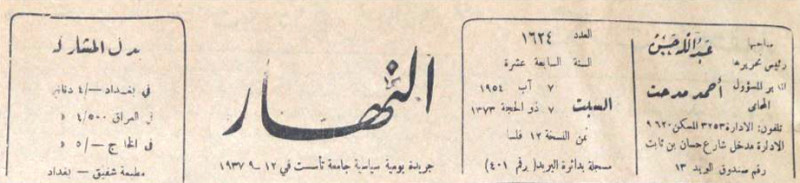 صاحبها
عبد الله حسن
رئيس تحريرها
المدير المسؤول أحمد مدحت
المحامي
تلفون: الادارة ٣٢٥٣ المسكن ٩٦٢٠
الادارة مدخل شارع حسان بن ثابت
رقم صندوق البريد ١٣
العدد ١٦٢٤
السنة السابعة عشرة
السبت
٧ آب ١٩٥٤
٧ ذو الحجة ١٣٧٣
ثمن النسخة ١٢ فلسا
مسجلة بدائرة البريد (برقم ٤٠١)
النهار
جريدة يومية سياسية جامعة تأسست في ١٢ـ٩ـ١٩٣٧
بدل المشاركة
في بغداد ـ/٤ دنانير
في العراق ٤/٥٠٠ د
في الخارج ـ/٥ د
مطبعة شفيق ـ بغداد